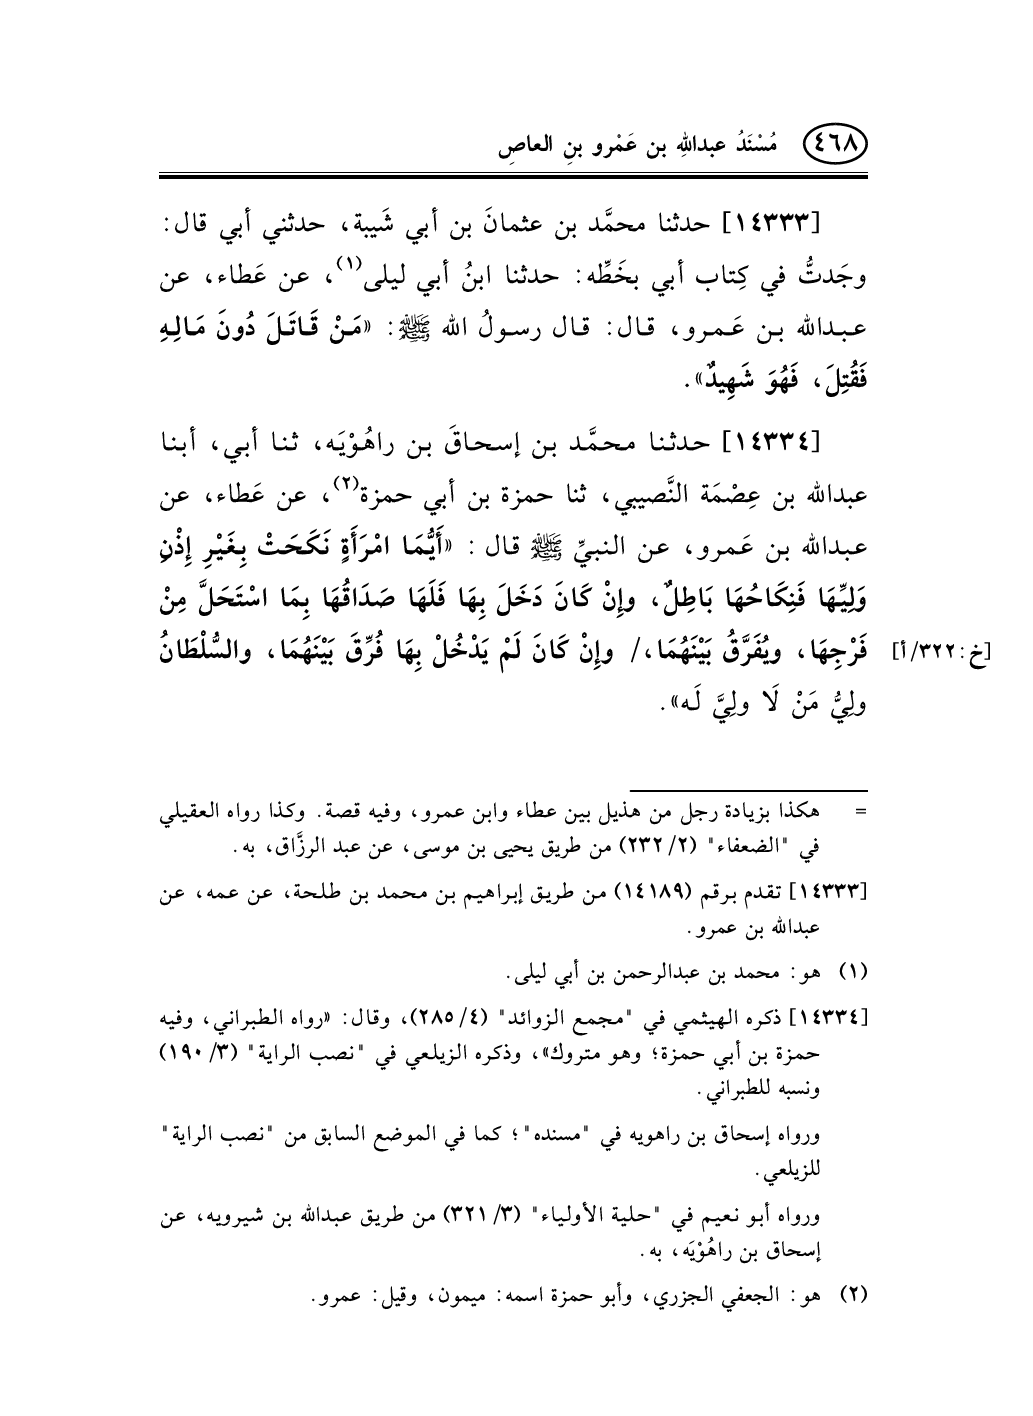 ٤٦٨ مُسْنَدُ عبداللهِ بن عَمْرو بنِ العاصِ
[١٤٣٣٣] حدثنا محمَّد بن عثمانَ بن أبي شَيبة، حدثني أبي قال:
وجَدتُّ في كِتاب أبي بخَطِّه: حدثنا ابنُ أبي ليلى(١)، عن عَطاء، عن
عبدالله بن عَمرو، قال: قال رسولُ الله ﷺ: «مَنْ قَاتَلَ دُونَ مَالِهِ
فَقُتِلَ، فَهُوَ شَهِيدٌ».
[١٤٣٣٤] حدثنا محمَّد بن إسحاقَ بن راهُوْيَه، ثنا أبي، أبنا
عبدالله بن عِصْمَة النَّصيبي، ثنا حمزة بن أبي حمزة(٢)، عن عَطاء، عن
عبدالله بن عَمرو، عن النبيِّ ﷺ قال: «أَيُّمَا امْرَأَةٍ نَكَحَتْ بِغَيْرِ إِذْنِ
وَلِيِّهَا فَنِكَاحُهَا بَاطِلٌ، وإِنْ كَانَ دَخَلَ بِهَا فَلَهَا صَدَاقُهَا بِمَا اسْتَحَلَّ مِنْ
فَرْجِهَا، ويُفَرَّقُ بَيْنَهُمَا،/ وإِنْ كَانَ لَمْ يَدْخُلْ بِهَا فُرِّقَ بَيْنَهُمَا، والسُّلْطَانُ
[خ: ٣٢٢/أ]
ولِيُّ مَنْ لَا ولِيَّ لَه».
= هكذا بزيادة رجل من هذيل بين عطاء وابن عمرو، وفيه قصة. وكذا رواه العقيلي
في "الضعفاء" (٢/ ٢٣٢) من طريق يحيى بن موسى، عن عبد الرزَّاق، به.
[١٤٣٣٣] تقدم برقم (١٤١٨٩) من طريق إبراهيم بن محمد بن طلحة، عن عمه، عن
عبدالله بن عمرو.
(١) هو: محمد بن عبدالرحمن بن أبي ليلى.
[١٤٣٣٤] ذكره الهيثمي في "مجمع الزوائد" (٤/ ٢٨٥)، وقال: «رواه الطبراني، وفيه
حمزة بن أبي حمزة؛ وهو متروك»، وذكره الزيلعي في "نصب الراية" (٣/ ١٩٠)
ونسبه للطبراني.
ورواه إسحاق بن راهويه في "مسنده"؛ كما في الموضع السابق من "نصب الراية"
للزيلعي.
ورواه أبو نعيم في "حلية الأولياء" (٣/ ٣٢١) من طريق عبدالله بن شيرويه، عن
إسحاق بن راهُوْيَه، به.
(٢) هو: الجعفي الجزري، وأبو حمزة اسمه: ميمون، وقيل: عمرو.